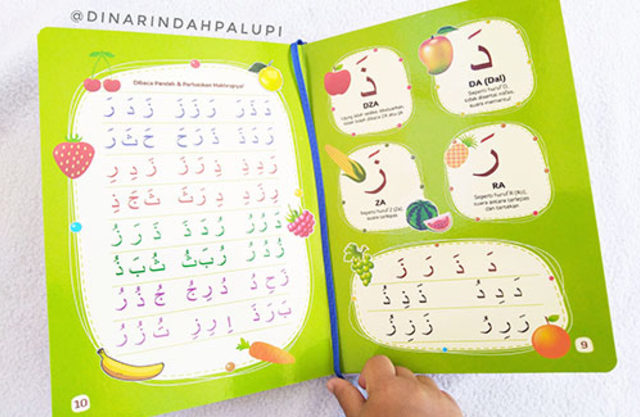 @DINARINDAHPALUPI
دَ
DA (Dal)
Seperti huruf D,
tidak disertai nafas,
suara memantul
ذَ
DZA
رَ
RA
Seperti huruf R (Ro),
suara antara terlepas
dan tertekan
زَ
ZA
Seperti huruf Z (Za),
suara terlepas
دَ ذَ رَ زَ
دَ دِ دُ ذَ ذِ ذُ
رَ رِ رُ زَ زِ زُ
9
Dibaca Pendek & Perhatikan Makhrajnya!
زَ دَ رَ
ذَ رَ حَ حَ ثَ رَ
زَ دِ رِ
ثَ جَ ذِ
ذَ رَ زُ
رُ بَ ثُ ثُ بَ ذُ
زَ حِ دَ دُ رِ جُ جُ ذُ رُ
بَ رَ ذَ اِ رِ زِ تُ زُ رُ
10